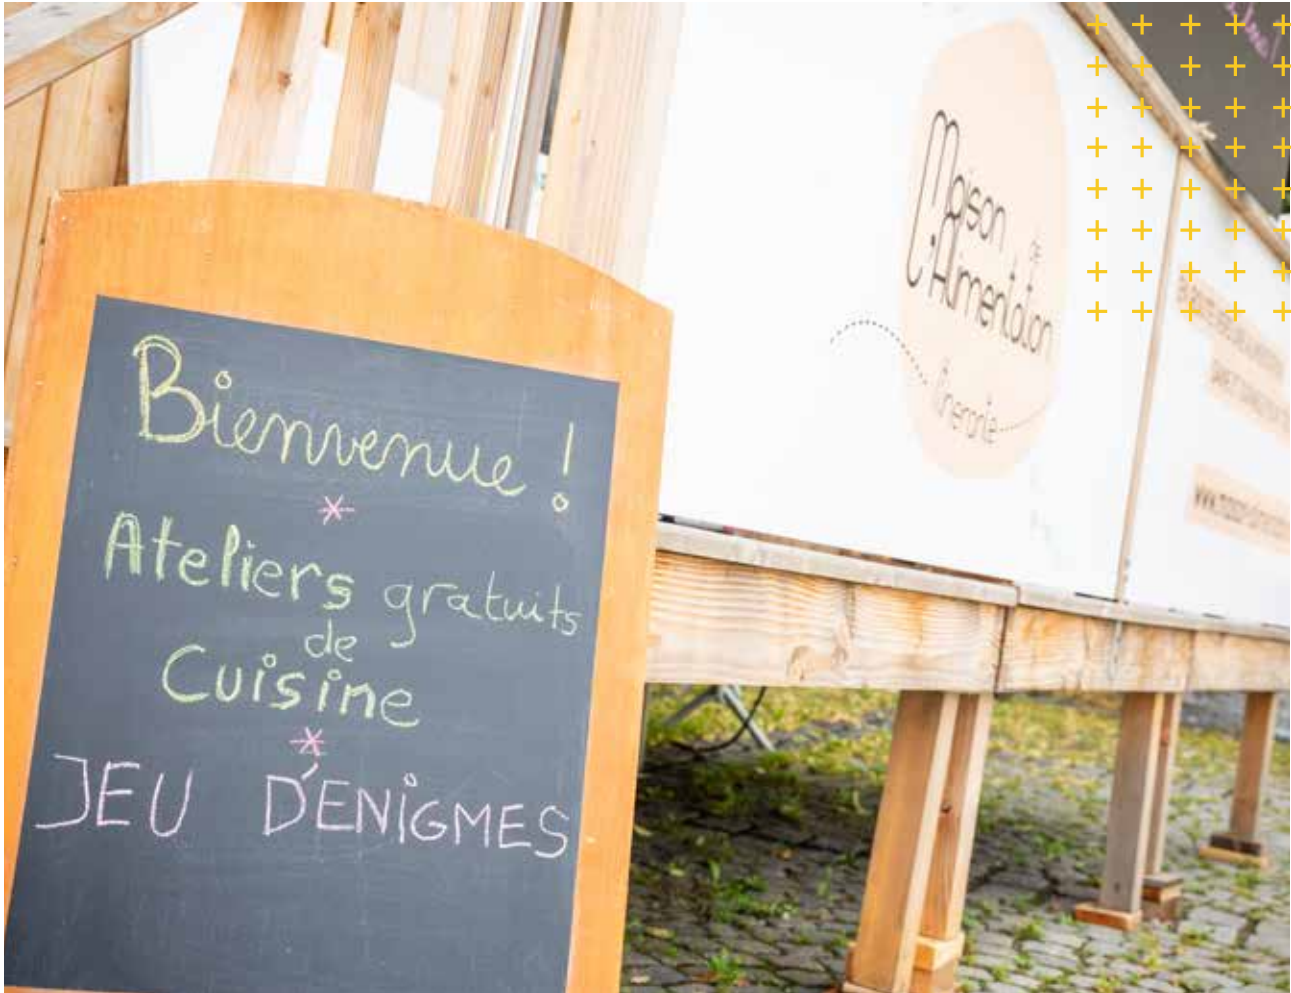 Bienvenue !
Ateliers gratuits
de
Cuisine
JEU D'ENIGMES
Maison
DE
L'Alimentation
itinérante